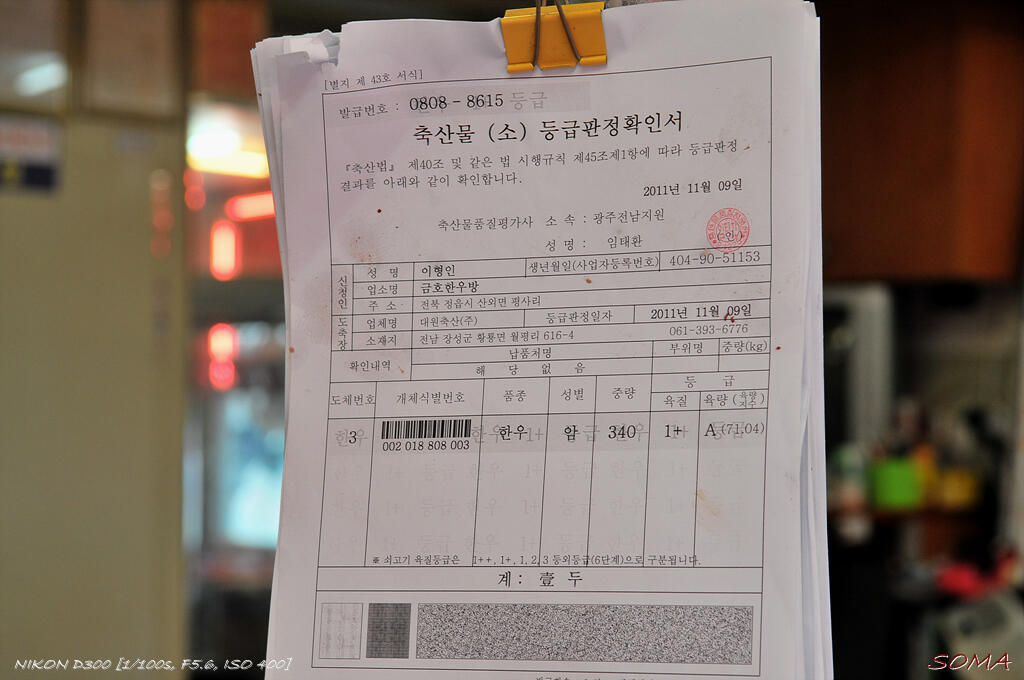 [별지 제 43호 서식]
발급번호 : 0808 - 8615 등급
축산물 (소) 등급판정확인서
『축산법』 제40조 및 같은 법 시행규칙 제45조제1항에 따라 등급판정
결과를 아래와 같이 확인합니다.
2011년 11월 09일
축산물품질평가사 소 속 : 광주전남지원
성 명 : 임태환 (인)
신청인 성 명 이형인 생년월일(사업자등록번호) 404-90-51153
업소명 금호한우방
주 소 전북 정읍시 산외면 평사리
도축장 업체명 대원축산(주) 등급판정일자 2011년 11월 09일
소재지 전남 장성군 황룡면 월평리 616-4 061-393-6776
확인내역 납품처명 부위명 중량(kg)
해 당 없 음
도체번호 개체식별번호 품종 성별 중량 등 급
육질 육량 (육량지수)
3 002 018 808 003 한우 암 340 1+ A (71.04)
※ 쇠고기 육질등급은 1++, 1+, 1, 2, 3 등외등급(6단계)으로 구분됩니다.
계 : 壹 두
NIKON D300 [1/100s, F5.6, ISO 400]
SOMA